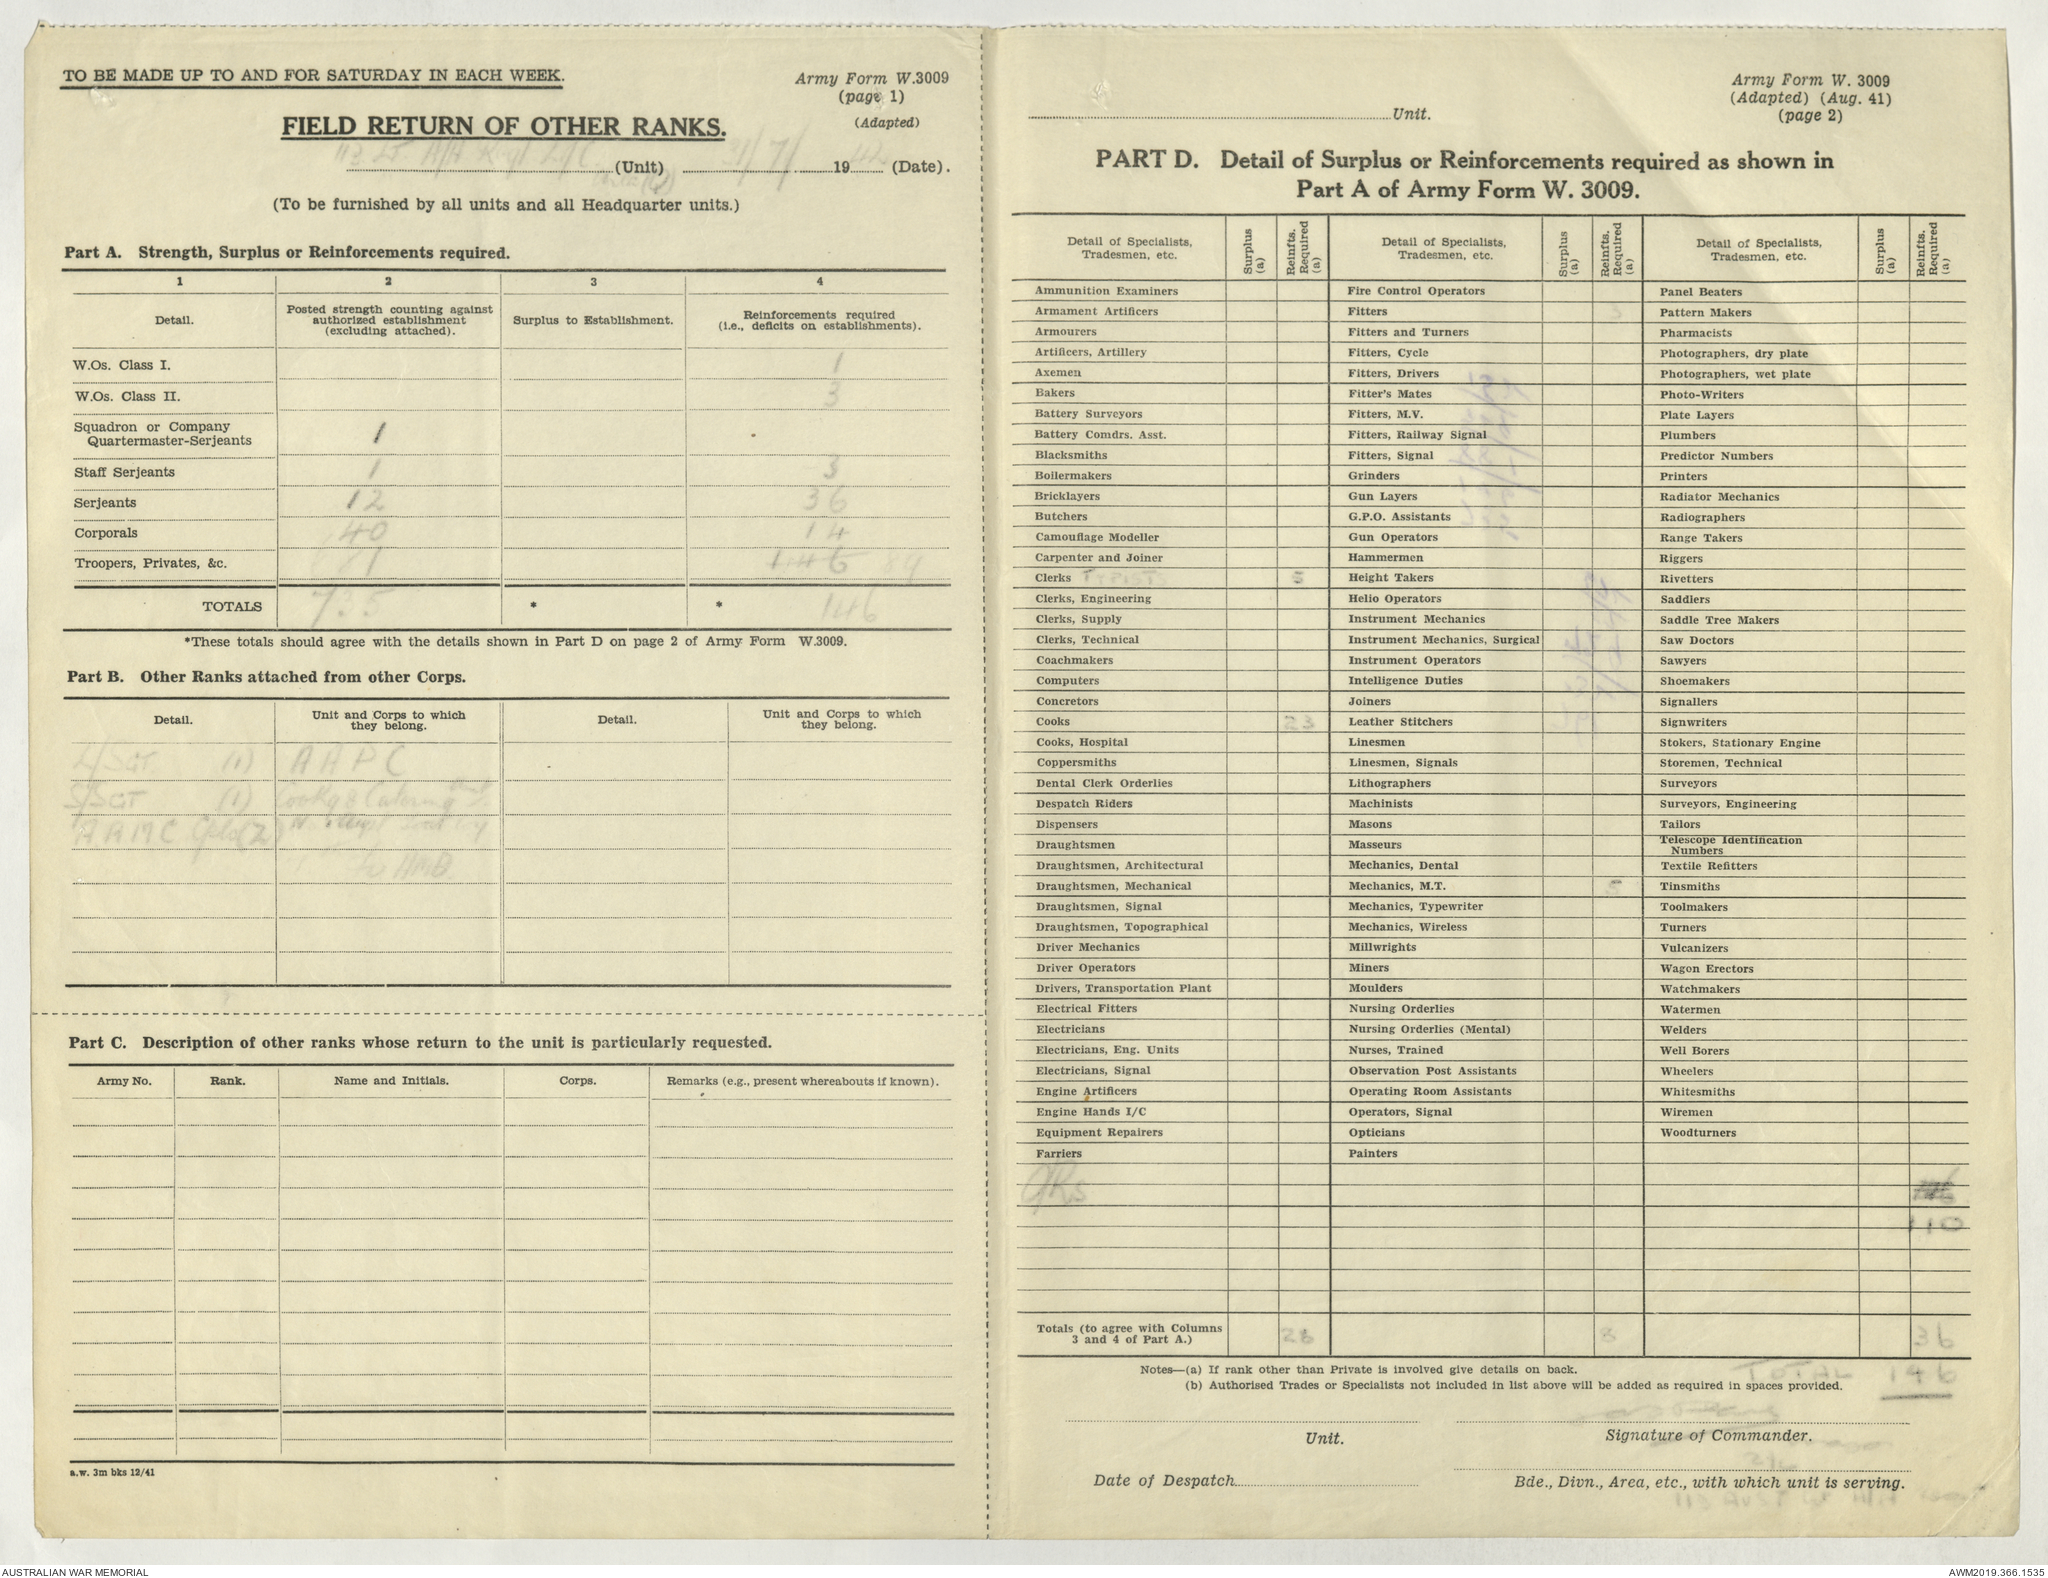 TO BE MADE UP TO AND FOR SATURDAY IN EACH WEEK.
Army Form W.3009
(page 1)
(Adapted)
FIELD RETURN OF OTHER RANKS.
113 Lt A/A Regt (Unit) 31/7/ 1942 (Date).
(To be furnished by all units and all Headquarter units.)
Part A. Strength, Surplus or Reinforcements required.
1 2 3 4
Detail. Posted strength counting against authorized establishment (excluding attached). Surplus to Establishment. Reinforcements required (i.e., deficits on establishments).
W.Os. Class I. 1
W.Os. Class II. 3
Squadron or Company Quartermaster-Serjeants 1
Staff Serjeants 1 3
Serjeants 12 36
Corporals 40 14
Troopers, Privates, &c. 681 146 89
TOTALS 735 * * 146
*These totals should agree with the details shown in Part D on page 2 of Army Form W.3009.
Part B. Other Ranks attached from other Corps.
Detail. Unit and Corps to which they belong. Detail. Unit and Corps to which they belong.
L/SGT (1) A A P C
S/SGT (1) Cookg & Catering
A A M C Cpls (2)
to AMB.
Part C. Description of other ranks whose return to the unit is particularly requested.
Army No. Rank. Name and Initials. Corps. Remarks (e.g., present whereabouts if known).
a.w. 3m bks 12/41
Unit.
Army Form W. 3009
(Adapted) (Aug. 41)
(page 2)
PART D. Detail of Surplus or Reinforcements required as shown in
Part A of Army Form W. 3009.
Detail of Specialists, Tradesmen, etc. Surplus (a) Reinfts. Required (a) Detail of Specialists, Tradesmen, etc. Surplus (a) Reinfts. Required (a) Detail of Specialists, Tradesmen, etc. Surplus (a) Reinfts. Required (a)
Ammunition Examiners Fire Control Operators Panel Beaters
Armament Artificers Fitters 3 Pattern Makers
Armourers Fitters and Turners Pharmacists
Artificers, Artillery Fitters, Cycle Photographers, dry plate
Axemen Fitters, Drivers Photographers, wet plate
Bakers Fitter's Mates Photo-Writers
Battery Surveyors Fitters, M.V. Plate Layers
Battery Comdrs. Asst. Fitters, Railway Signal Plumbers
Blacksmiths Fitters, Signal Predictor Numbers
Boilermakers Grinders Printers
Bricklayers Gun Layers Radiator Mechanics
Butchers G.P.O. Assistants Radiographers
Camouflage Modeller Gun Operators Range Takers
Carpenter and Joiner Hammermen Riggers
Clerks TYPISTS 5 Height Takers Rivetters
Clerks, Engineering Helio Operators Saddlers
Clerks, Supply Instrument Mechanics Saddle Tree Makers
Clerks, Technical Instrument Mechanics, Surgical Saw Doctors
Coachmakers Instrument Operators Sawyers
Computers Intelligence Duties Shoemakers
Concretors Joiners Signallers
Cooks 23 Leather Stitchers Signwriters
Cooks, Hospital Linesmen Stokers, Stationary Engine
Coppersmiths Linesmen, Signals Storemen, Technical
Dental Clerk Orderlies Lithographers Surveyors
Despatch Riders Machinists Surveyors, Engineering
Dispensers Masons Tailors
Draughtsmen Masseurs Telescope Identification Numbers
Draughtsmen, Architectural Mechanics, Dental Textile Refitters
Draughtsmen, Mechanical Mechanics, M.T. 5 Tinsmiths
Draughtsmen, Signal Mechanics, Typewriter Toolmakers
Draughtsmen, Topographical Mechanics, Wireless Turners
Driver Mechanics Millwrights Vulcanizers
Driver Operators Miners Wagon Erectors
Drivers, Transportation Plant Moulders Watchmakers
Electrical Fitters Nursing Orderlies Watermen
Electricians Nursing Orderlies (Mental) Welders
Electricians, Eng. Units Nurses, Trained Well Borers
Electricians, Signal Observation Post Assistants Wheelers
Engine Artificers Operating Room Assistants Whitesmiths
Engine Hands I/C Operators, Signal Wiremen
Equipment Repairers Opticians Woodturners
Farriers Painters
ORs
110
Totals (to agree with Columns 3 and 4 of Part A.) 28 8 36
Notes—(a) If rank other than Private is involved give details on back.
TOTAL 146
(b) Authorised Trades or Specialists not included in list above will be added as required in spaces provided.
Unit.
Signature of Commander.
Date of Despatch
Bde., Divn., Area, etc., with which unit is serving.
113 AUST LT A/A
AUSTRALIAN WAR MEMORIAL
AWM2019.366.1535